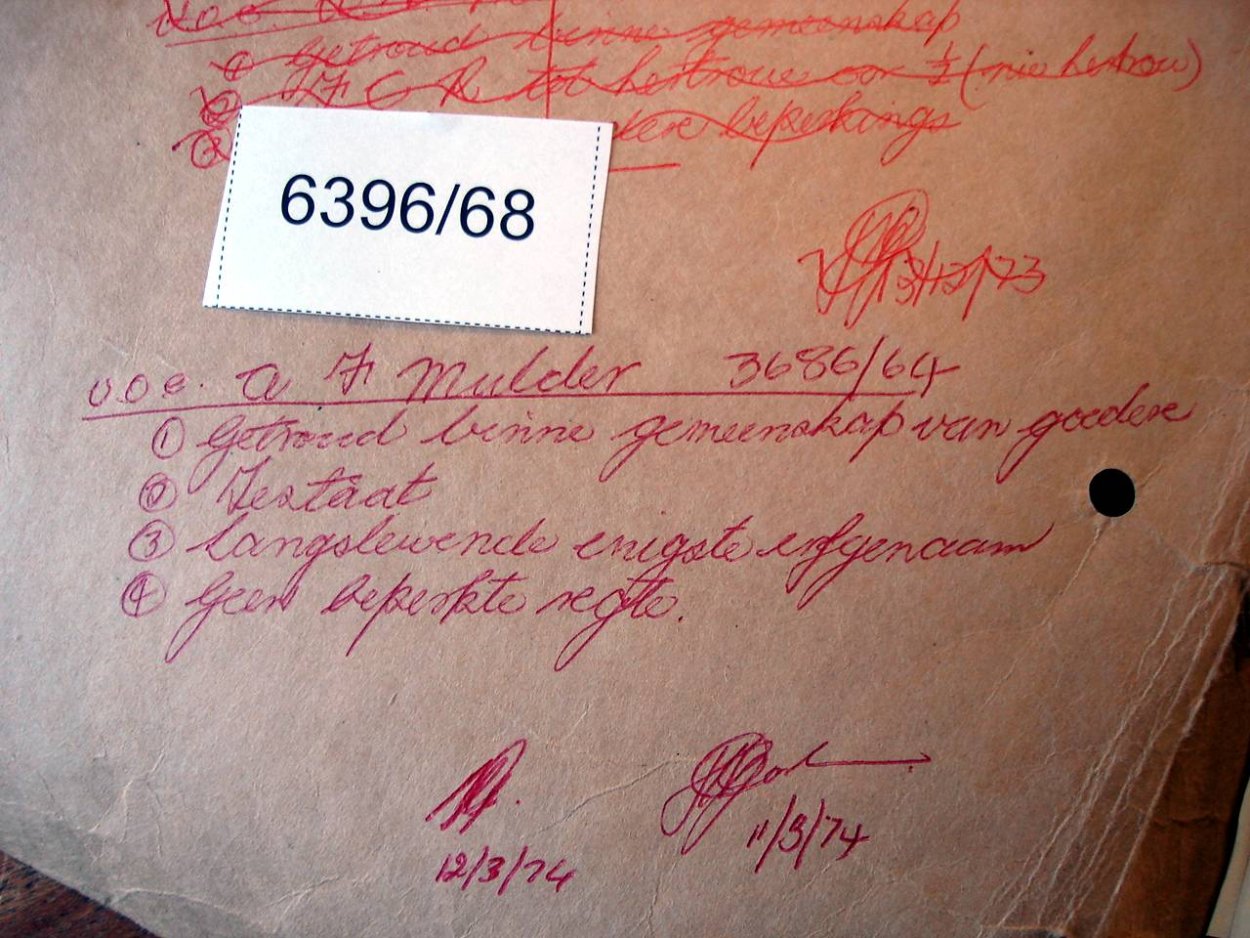 ① Getroud binne gemeenskap
② A F C R tot hertroue oor ½ (nie hertrou)
③ beperkings
6396/68
13/12/73
v.o.e. A F Mulder 3686/64
① Getroud binne gemeenskap van goedere
② Testaat
③ Langslewende enigste erfgenaam
④ Geen beperkte regte.
12/3/74
11/3/74